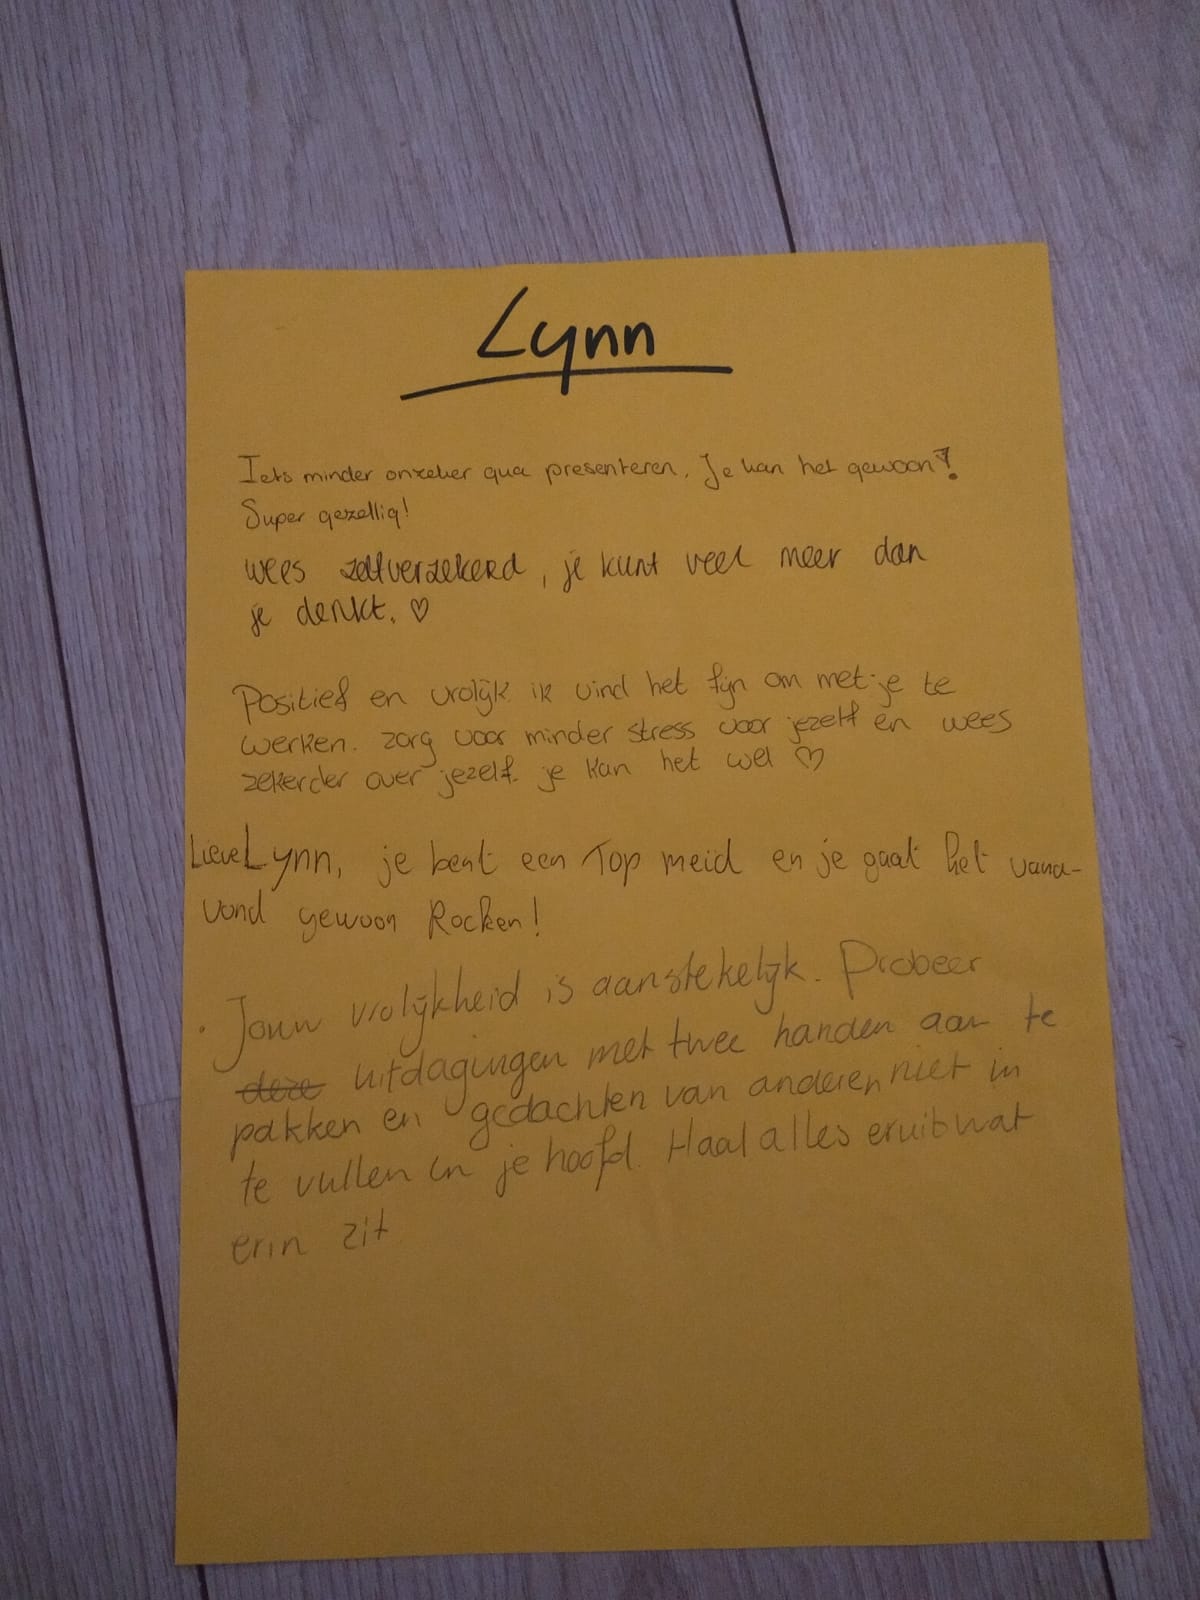 Lynn
Iets minder onzeker qua presenteren. Je kan het gewoon!
Super gezellig!
wees zelfverzekerd, je kunt veel meer dan
je denkt. ♡
Positief en vrolijk ik vind het fijn om met je te
werken. zorg voor minder stress voor jezelf en wees
zekerder over jezelf. je kan het wel ♡
Lieve Lynn, je bent een Top meid en je gaat het vana-
vond gewoon Rocken!
· Jouw vrolijkheid is aanstekelijk. Probeer
deze uitdagingen met twee handen aan te
pakken en gedachten van anderen niet in
te vullen in je hoofd. Haal alles eruit wat
erin zit